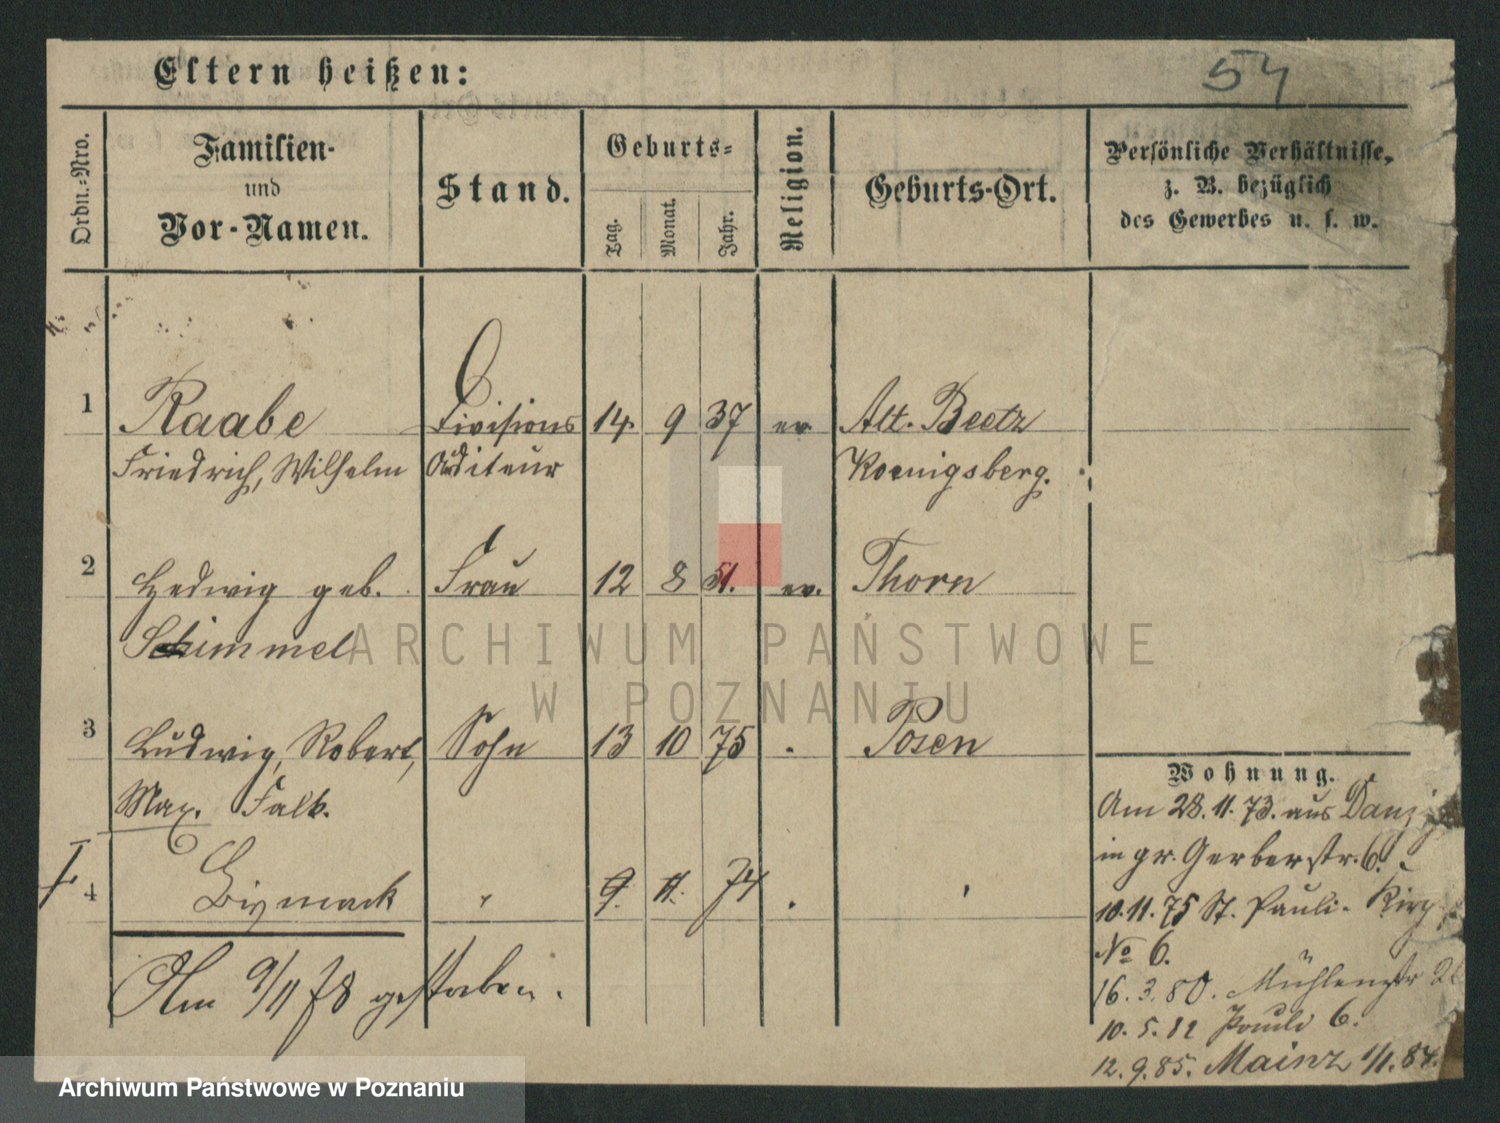 Eltern heißen:
54
Ordn.-Nro.
Familien-
und
Vor-Namen.
Stand.
Geburts-
Tag.
Monat.
Jahr.
Religion.
Geburts-Ort.
Persönliche Verhältnisse,
z. B. bezüglich
des Gewerbes u. s. w.
1 Raabe Divisions 14. 9 37 ev. Alt. Beetz
Friedrich, Wilhelm Auditeur Koenigsberg.
2 Hedwig geb. Frau 12 8 51. ev. Thorn
Schimmel
3 Ludwig, Robert, Sohn 13 10 75 Posen
Max. Falk.
4 Bismarck " 9. 11. 74
Am 9/11 78 gestorben.
Wohnung.
Am 28. 11. 73. aus Danzig
in gr. Gerberstr. 6.
10. 11. 75 St. Pauli-Kirch
No 6.
16. 3. 80. Mühlenstr
10. 5. 82 Pauli 6.
12. 9. 85. Mainz 1/1. 84.
ARCHIWUM PAŃSTWOWE
W POZNANIU
Archiwum Państwowe w Poznaniu